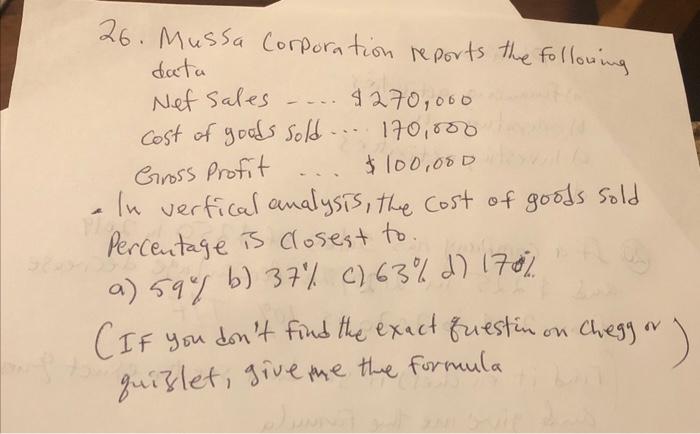 26. Mussa Corporation reports the following
data
Net Sales - .... $270,000
Cost of goods sold ... 170,000
Gross Profit ... $100,000
• In vertical analysis, the cost of goods sold
Percentage is closest to.
a) 59% b) 37% c) 63% d) 170%
(IF you don't find the exact questin on chegg or
quizlet, give me the formula)